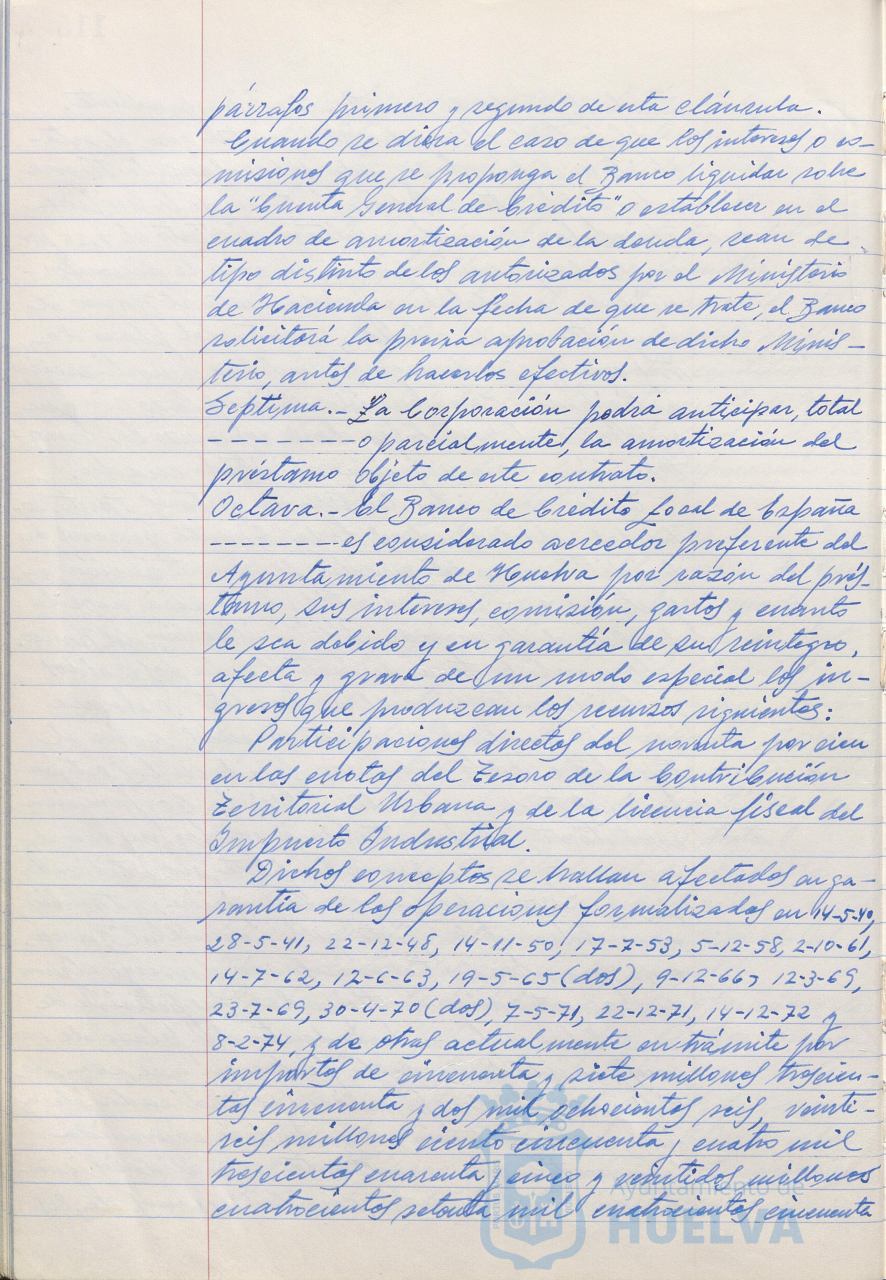 párrafos primero y segundo de esta cláusula.
Cuando se diera el caso de que los intereses o co-
misiones que se proponga el Banco liquidar sobre
la "Cuenta General de Crédito" o establecer en el
cuadro de amortización de la deuda, sean de
tipo distinto de los autorizados por el Ministerio
de Hacienda en la fecha de que se trate, el Banco
solicitará la previa aprobación de dicho Minis-
terio, antes de hacerlos efectivos.
Septima.- La Corporación podrá anticipar, total
------- o parcialmente, la amortización del
préstamo objeto de este contrato.
Octava.- El Banco de Crédito Local de España
------- es considerado acreedor preferente del
Ayuntamiento de Huelva por razón del prés-
tamo, sus intereses, comisión, gastos y cuanto
le sea debido y en garantía de su reintegro,
afecta y grava de un modo especial los in-
gresos que produzcan los recursos siguientes:
Participaciones directas del noventa por cien
en las cuotas del Tesoro de la Contribución
Territorial Urbana y de la licencia fiscal del
Impuesto Industrial.
Dichos conceptos se hallan afectados en ga-
rantía de las operaciones formalizadas en 14-5-40,
28-5-41, 22-12-48, 14-11-50, 17-7-53, 5-12-58, 2-10-61,
14-7-62, 12-6-63, 19-5-65 (dos), 9-12-66, 12-3-69,
23-7-69, 30-4-70 (dos), 7-5-71, 22-12-71, 14-12-72 y
8-2-74, y de otras actualmente en trámite por
importes de cincuenta y siete millones trescien-
tas cincuenta y dos mil ochocientas seis, veinti-
seis millones ciento cincuenta y cuatro mil
trescientas cuarenta y cinco y veintidos millones
cuatrocientas setenta mil cuatrocientas cincuenta
Ayuntamiento de
HUELVA